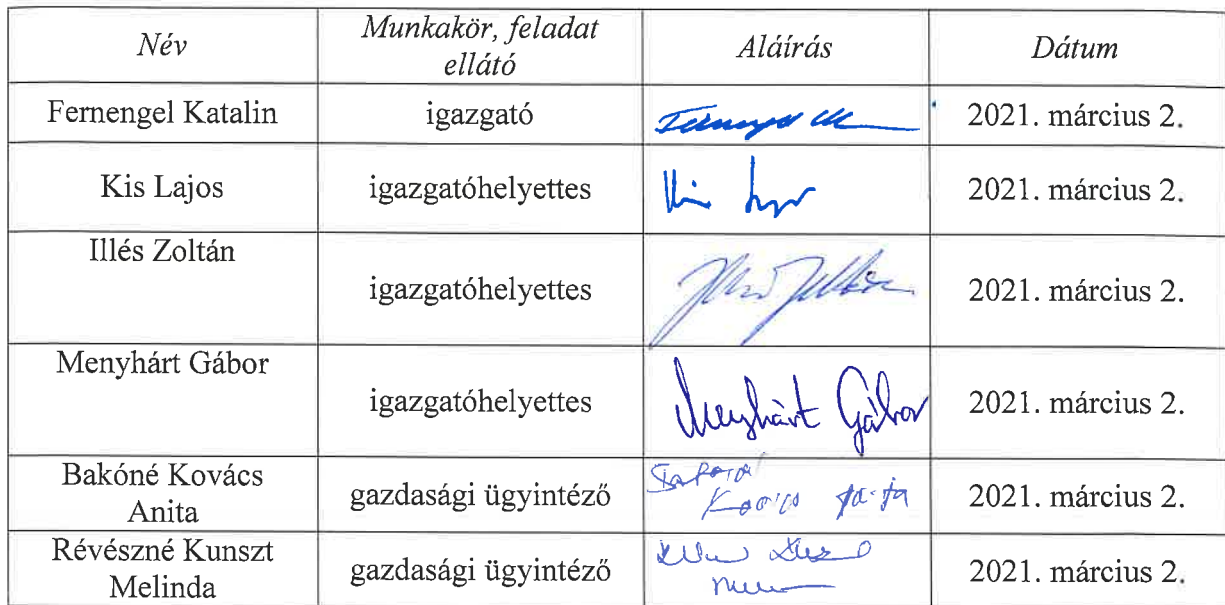 Név Munkakör, feladat ellátó Aláírás Dátum
Fernengel Katalin igazgató 2021. március 2.
Kis Lajos igazgatóhelyettes 2021. március 2.
Illés Zoltán igazgatóhelyettes 2021. március 2.
Menyhárt Gábor igazgatóhelyettes Menyhárt Gábor 2021. március 2.
Bakóné Kovács Anita gazdasági ügyintéző 2021. március 2.
Révészné Kunszt Melinda gazdasági ügyintéző 2021. március 2.